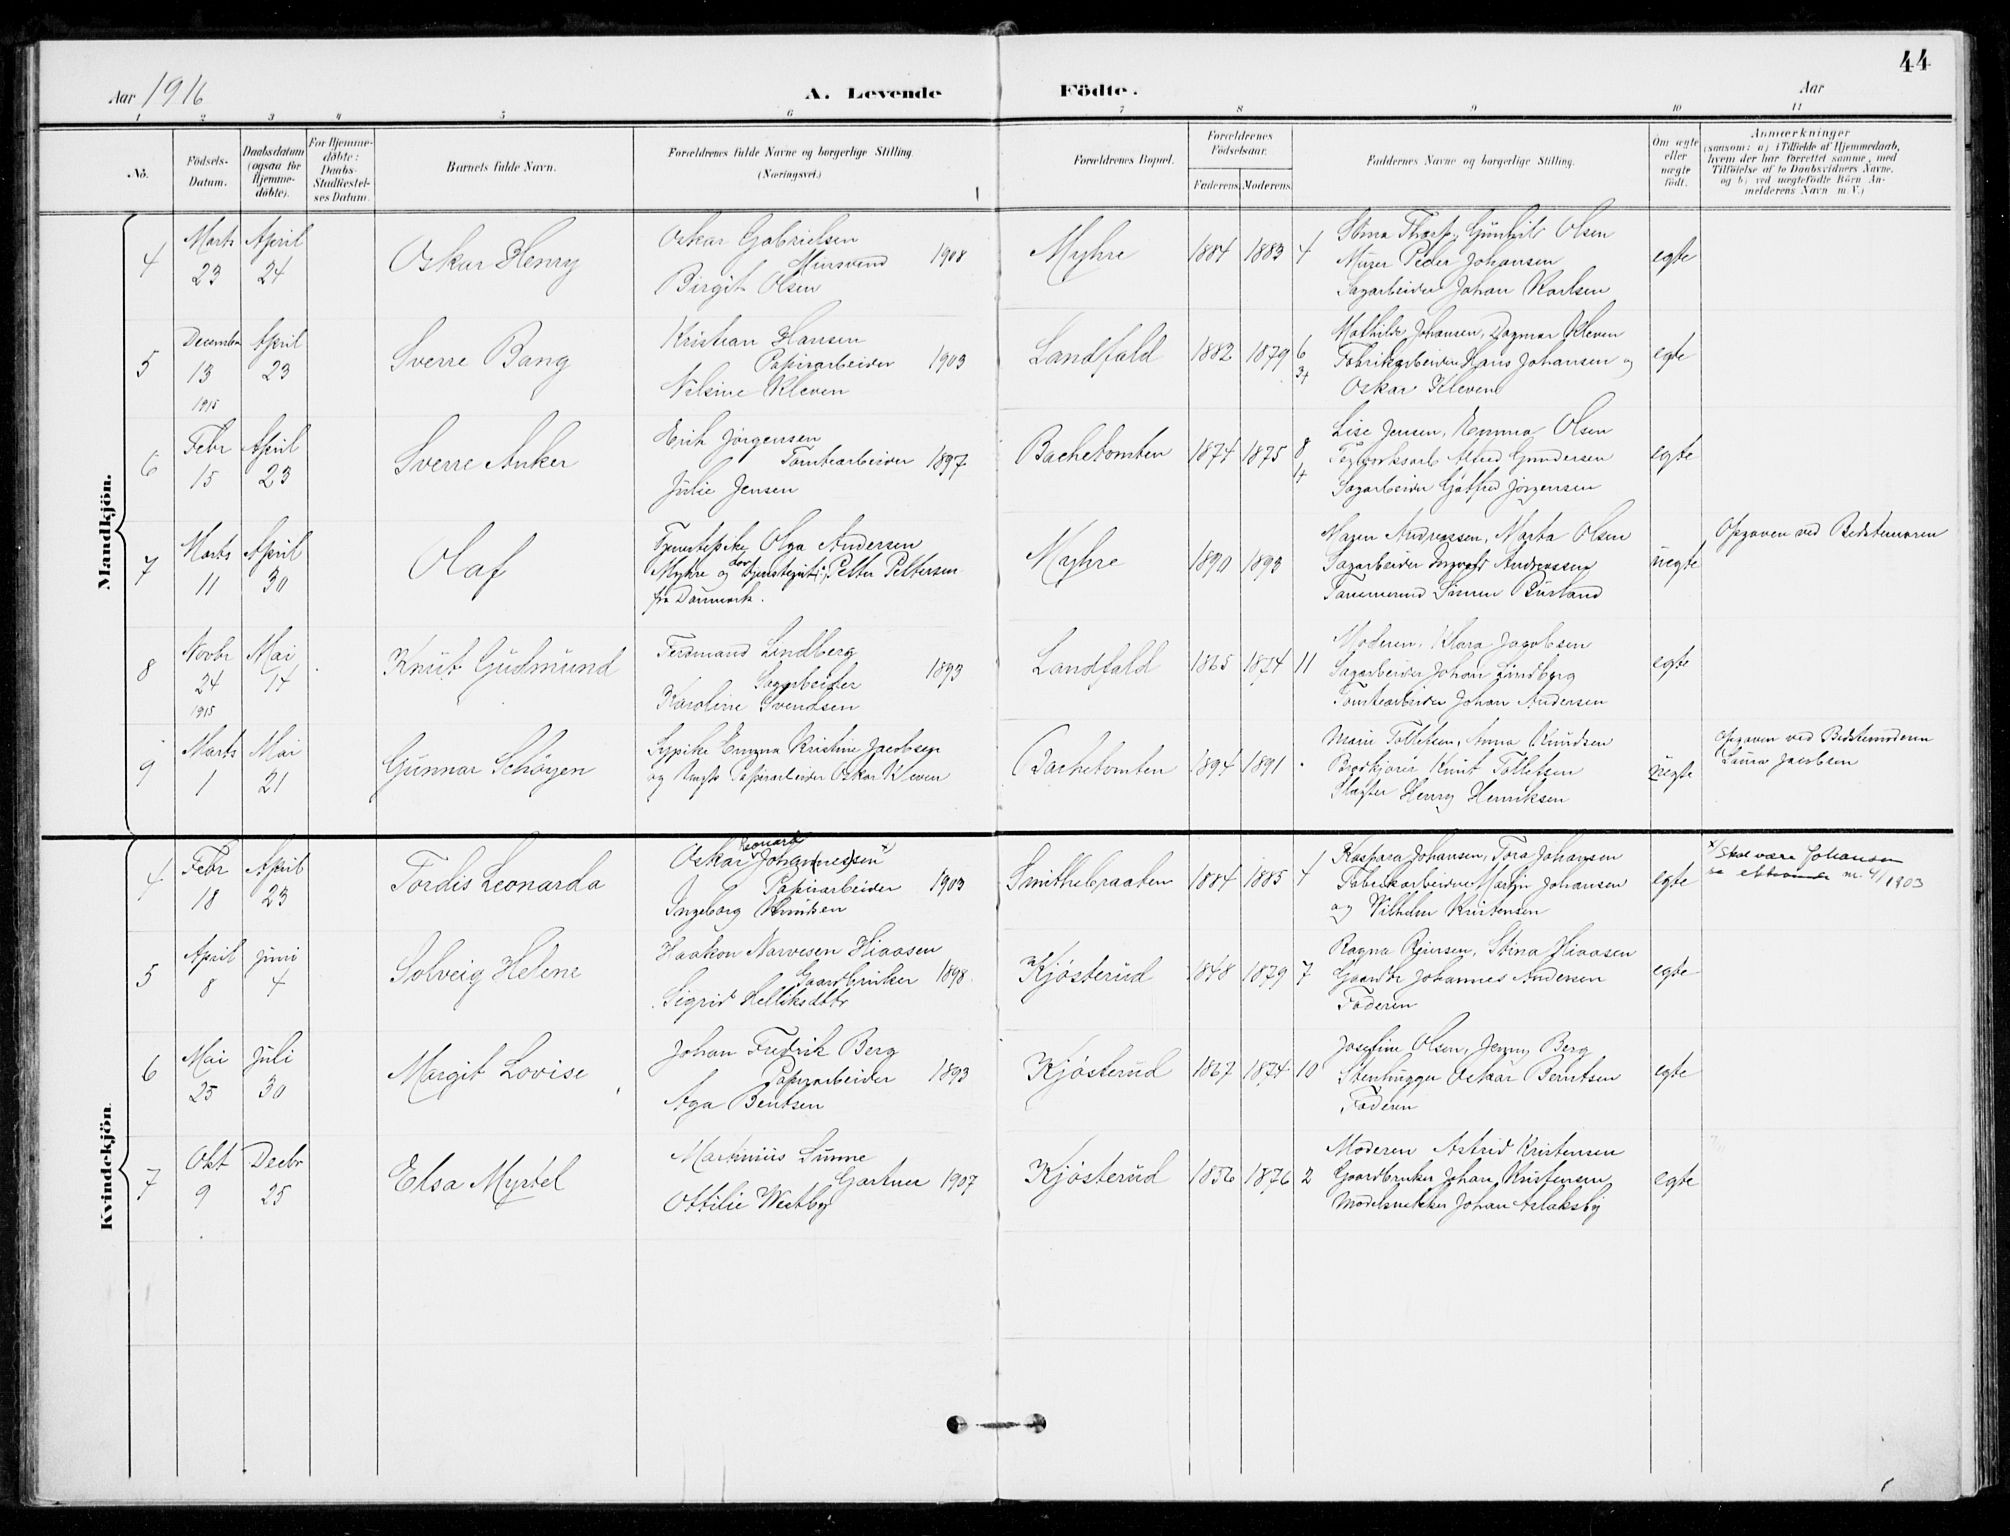 44
Aar 1916
A. Levende Födte.
Aar
1 2 3 4 5 6 7 8 9 10 11
No.
Födsels-Datum.
Daabsdatum (ogsaa for Hjemme-döbte).
For Hjemme-döbte: Daabs-Stadfæstel-ses Datum.
Barnets fulde Navn.
Forældrenes fulde Navne og borgerlige Stilling.
(Næringsvei.)
Forældrenes Bopæl.
Forældrenes Födselsaar.
Faderens. Moderens.
Faddernes Navne og borgerlige Stilling.
Om ægte eller uægte födt.
Anmærkninger
(saasom: a) i Tilfælde af Hjemmedaab, hvem der har forrettet samme, med Tilföielse af to Daabsvidners Navne, og b) ved uægtefödte Börn An-melderens Navn m. V.)
Mandkjön.
4 Marts 23 April 24 Oskar Henry
Oskar Gabrielsen
Mursvend 1908
Birgit Olsen
Myhre 1884 1883 4
Stina Thorp, Gunhild Olsen
Murer Peder Johansen
Sagarbeider Johan Karlsen
egte
5 December 13 1915 April 23 Sverre Bang
Kristian Hansen
Papirarbeider 1903
Nilsine Kleven
Landfald 1882 1879 6 3+
Mathilde Johansen, Dagmar Kleven
Fabrikarbeider Hans Johansen og
Oskar Kleven
egte
6 Febr 15 April 23 Sverre Anker
Erik Jørgensen
Tomtearbeider 1897
Julie Jensen
Bachetomten 1874 1875 8 1+
Lise Jensen, Hemma Olsen
Teglverksarb Alfred Gundersen
Sagarbeider Gotfred Jørgensen
egte
7 Marts 11 April 30 Olaf
Tjenestepike Olga Andersen
Myhre og Tjenestegut Petter Pettersen
fra Danmark.
Myhre 1890 1893
Maren Andreassen, Marta Olsen
Sagarbeider Ingvald Andreassen
Simen Burland
uegte
Opgaven ved Bedstemoren
8 Novbr 24 1915 Mai 14 Knut Gudmund
Ferdinand Lindberg
Sagarbeider 1893
Karoline Svendsen
Landfald 1865 1874 11
Moderen, Klara Jacobsen
Sagarbeider Johan Lindberg
Tomtearbeider Johan Andersen
egte
9 Marts 1 Mai 21 Gunnar Schøyen
Sypike Emma Kristine Jacobsen
og Ungk Papirarbeider Oskar Kleven
Bachetomten 1894 1891
Marie Tolletsen, Anna Knudsen
Brødkjører Knut Tolletsen
Slagter Henry Henriksen
uegte
Opgaven ved Bedstemoderen
Laura Jacobsen
Kvindekjön.
4 Febr 18 April 23 Tordis Leonarda
Leonard
Oskar Johan(nes)sen x
Papirarbeider 1903
Ingeborg Knudsen
Smithebraaten 1884 1885 4
Kaspara Johansen, Tora Johansen
Fabrikarbeiderne Martin Johansen
og Vilhelm Kristensen
egte
x/ skal være Johansen
m. 4/1903
5 April 8 Juni 4 Solveig Helene
Haakon Narvesen Hiaasen
Gaardbruker 1898
Sigrid Helliksdttr
Kjøsterud 1848 1879 7
Ragna Reiersen, Stina Hiaasen
Gaardbr Johannes Andersen
Faderen
egte
6 Mai 25 Juli 30 Margit Lovise
Johan Fredrik Berg
Papirarbeider 1893
Aga Bentsen
Kjøsterud 1867 1874 10
Josefine Olsen, Jenny Berg
Stenhugger Oskar Berntsen
Faderen
egte
7 Okt 9 Decbr 25 Elsa Myrtel
Martinius Lunne
Gartner 1907
Ottilie Westby
Kjøsterud 1856 1876 2
Moderen Astrid Kristensen
Gaardbruker Johan Kristensen
Modelsnekker Johan Aslaksby
egte